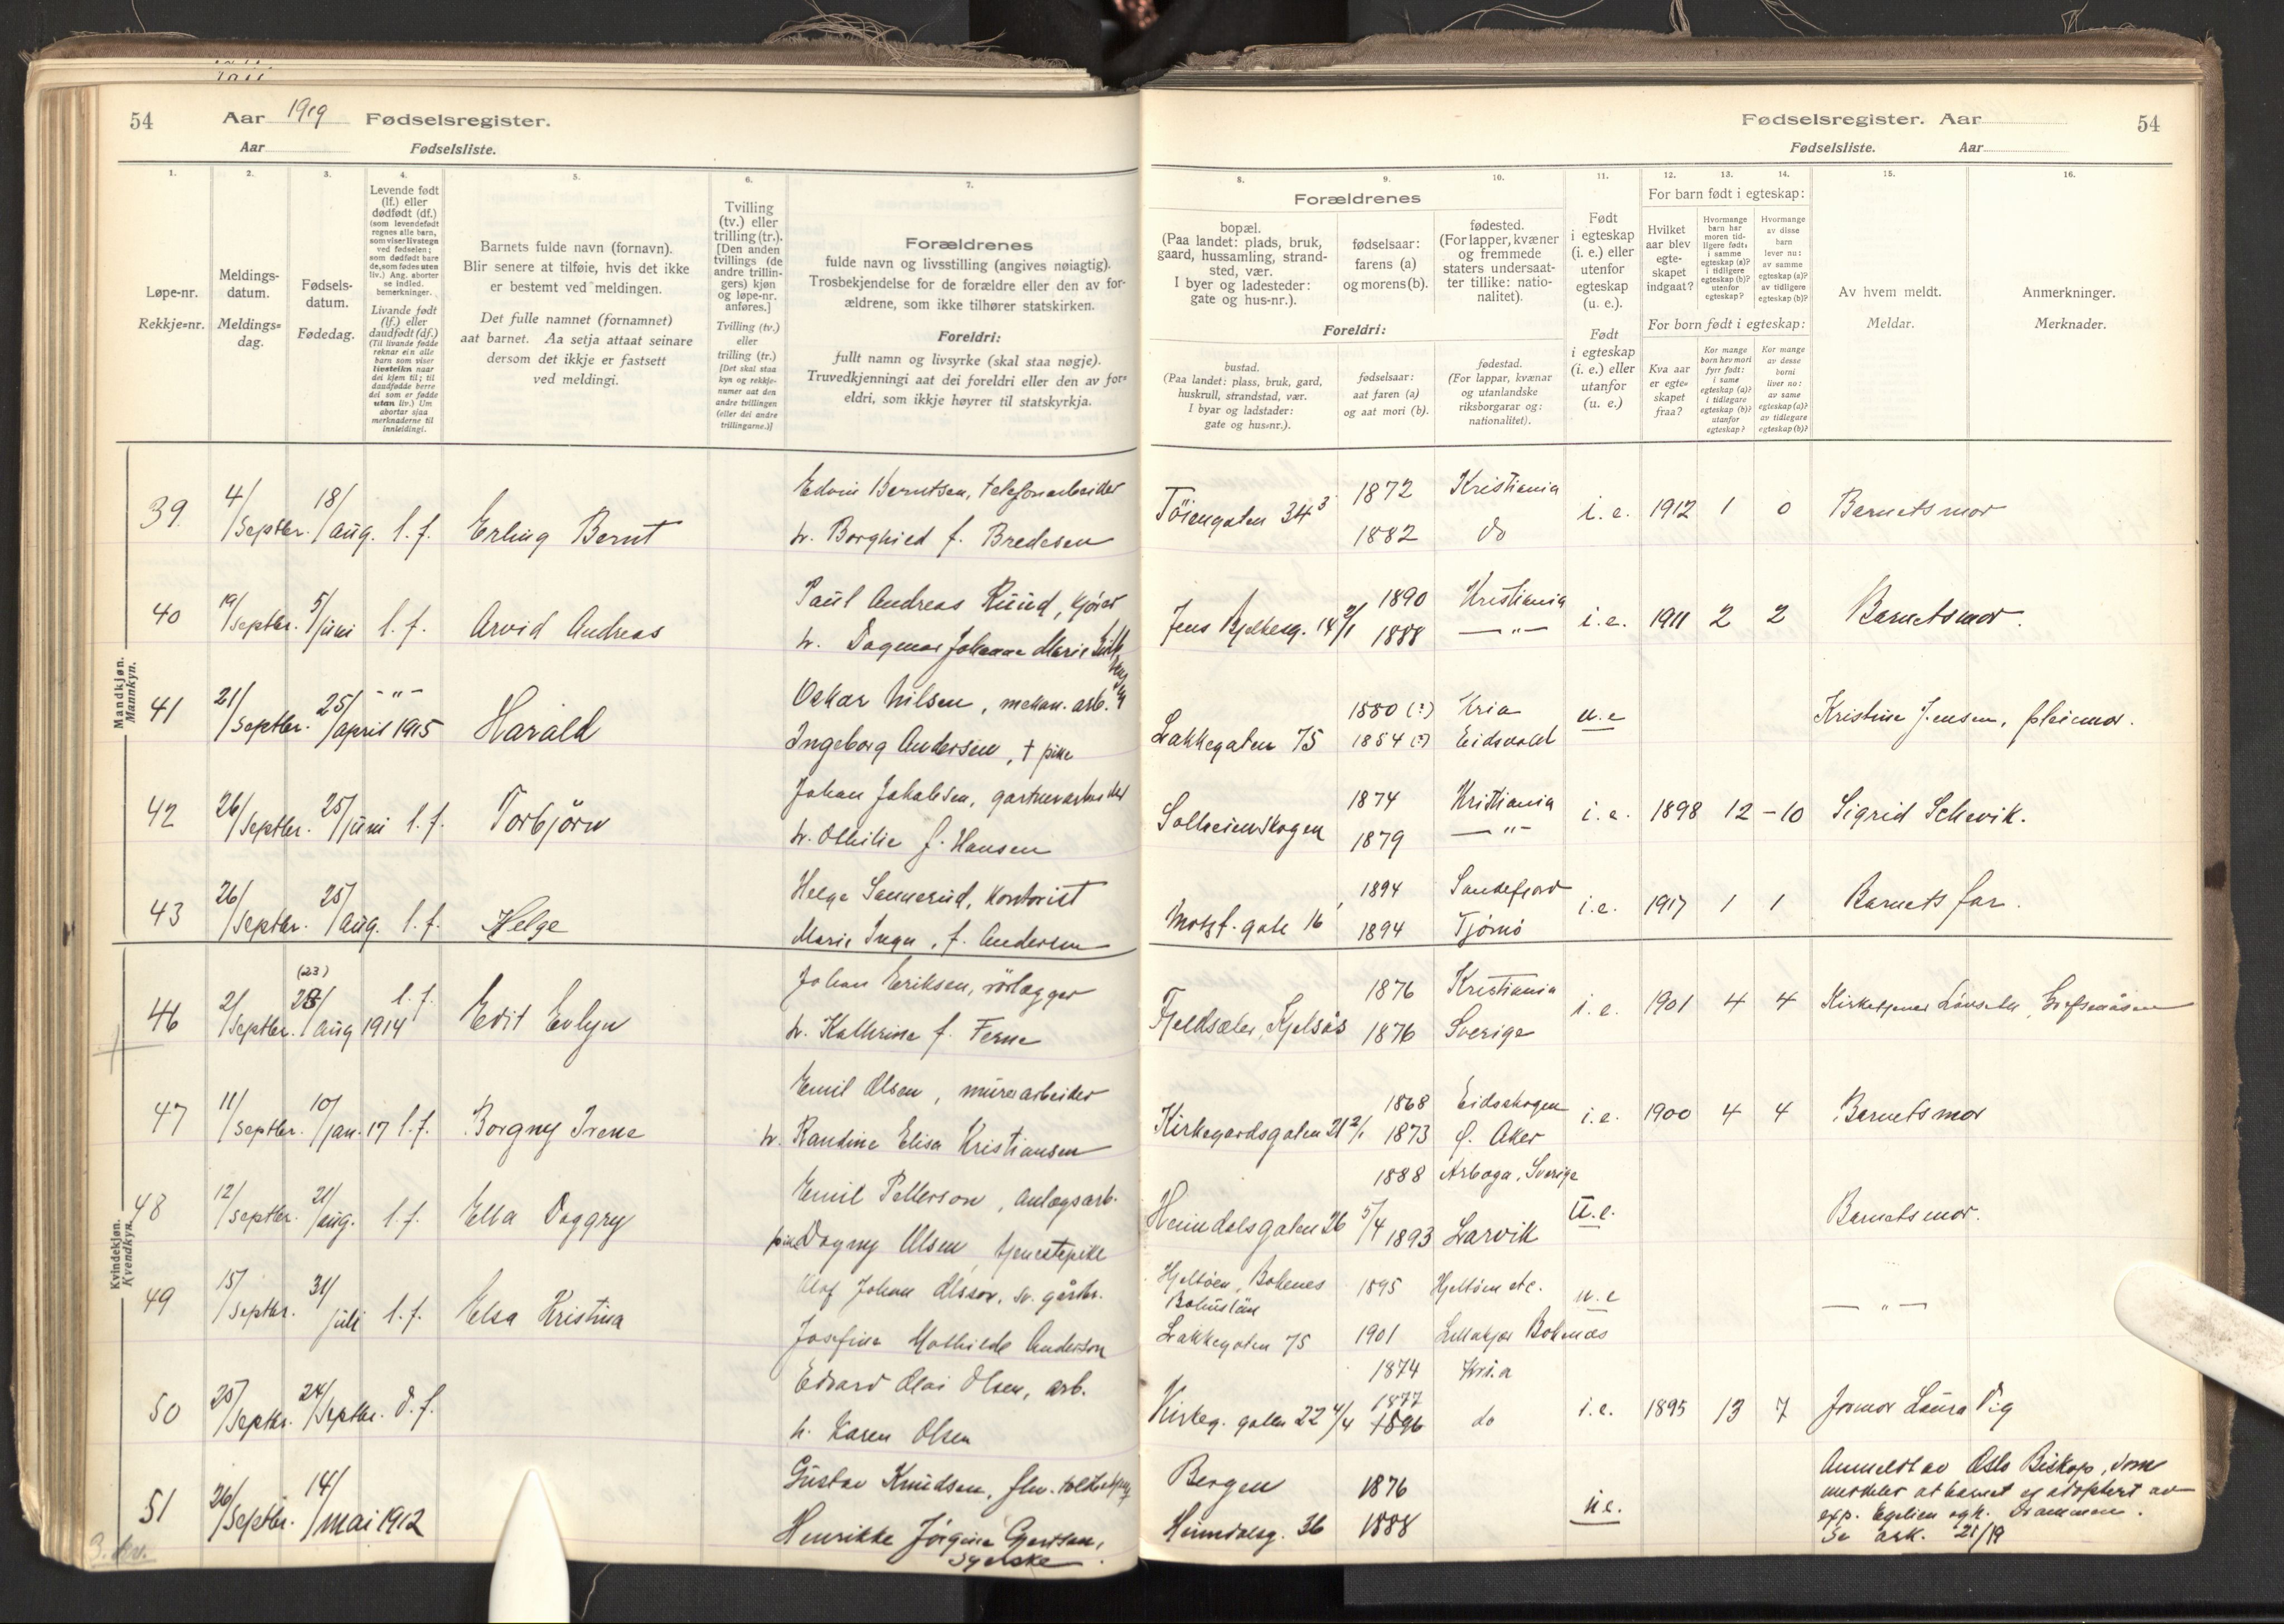 54
Aar 1919 Fødselsregister.
Aar Fødselsliste.
1.
2.
3.
4.
5.
6.
7.
Løpe-nr.
Rekkje=nr.
Meldings-
datum.
Meldings=
dag.
Fødsels-
datum.
Fødedag.
Levende født
(lf.) eller
dødfødt (df.)
(som levendefødt
regnes alle barn,
som viser livstegn
ved fødselen;
som dødfødt bare
de, som fødes uten
liv.) Ang. aborter
se indled.
bemerkninger.
Livande født
(lf.) eller
daudfødt (df.)
(Til livande fødde
reknar ein alle
barn som viser
livsteikn naar
dei kjem til; til
daudfødde berre
dei som er fødde
utan liv.) Um
abortar sjaa
merknaderne til
innleidingi.
Barnets fulde navn (fornavn).
Blir senere at tilføie, hvis det ikke
er bestemt ved meldingen.
Det fulle namnet (fornamnet)
aat barnet. Aa setja attaat seinare
dersom det ikkje er fastsett
ved meldingi.
Tvilling
(tv.) eller
trilling (tr.).
[Den anden
tvillings (de
andre trillin-
gers) kjøn
og løpe-nr.
anføres.]
Tvilling (tv.)
eller
trilling (tr.)
[Det skal staa
kyn og rekkje-
numer aat den
andre tvillingen
(eller dei andre
trillingarne.)]
Forældrenes
fulde navn og livsstilling (angives nøiagtig).
Trosbekjendelse for de forældre eller den av for-
ældrene, som ikke tilhører statskirken.
Foreldri:
fullt namn og livsyrke (skal staa nøgje).
Truvedkjenningi aat dei foreldri eller den av for=
eldri, som ikkje høyrer til statskyrkja.
Mandkjøn.
Mannkyn.
39. 4/Septbr. 18/aug. l.f. Erling Bernt
Edvin Berntsen, telefonarbeider
h. Borghild f. Bredesen
40 19/Septbr. 5/juni l.f. Arvid Andreas
Paul Andreas Ruud, kjører
h. Dagmar Johanne Marie
41 21/Septbr. 25/april 1915 -"- Harald
Oskar Nilsen, mekan. arb.
Ingeborg Andersen, + pike
42 26/Septbr. 25/juni l.f. Torbjörn
Johan Jakobsen, gartnerarbeider
h. Othilie f. Hansen
43 26/Septbr. 25/aug. l.f. Helge
Helge Sannerud, kontorist
Marie Inga, f. Andersen
Kvindekjøn.
Kvendkyn.
46 2/Septbr. (23) /aug 1914 l.f. Edit Evlyn
Johan Eriksen, rörlægger
h. Kathrine f. Ferne
47 11/Septbr. 10/jan. 17 l.f. Borgny Irene
Emil Olsen, murerarbeider
h. Randine Elisa Kristiansen
48 12/Septbr. 21/aug. l.f. Ella Daggry
Emil Petterson, anlægsarb.
pike Dagny Olsen, tjenestepike
49 15/Septbr. 31/juli l.f. Elsa Kristina
Olof Johan Olsson, sv. gårdbr.
Josefina Mathilde Anderson
50 25/Septbr. 24/Septbr. d.f.
Edvard Olai Olsen, arb.
h. Karen Olsen
51 26/Septbr. 14/mai 1912
Gustav Knudsen, flv.
Henrikke Jörgine Gjertsen,
syerske
3. kv.
Fødselsregister. Aar
54
Fødselsliste. Aar
8.
9.
10.
11.
12.
13.
14.
15.
16.
Forældrenes
bopæl.
(Paa landet: plads, bruk,
gaard, hussamling, strand-
sted, vær.
I byer og ladesteder:
gate og hus-nr.).
fødselsaar:
farens (a)
og morens (b).
fødested.
(For lapper, kvæner
og fremmede
staters undersaat-
ter tillike: natio-
nalitet).
Foreldri:
bustad.
(Paa landet: plass, bruk, gard,
huskrull, strandstad, vær.
I byar og ladstader:
gate og hus=nr.).
fødselsaar:
aat faren (a)
og aat mori (b).
fødestad.
(For lappar, kvænar
og utanlandske
riksborgarar og:
nationalitet).
Født
i egteskap
(i. e.) eller
utenfor
egteskap
(u. e.).
Født
i egteskap
(i. e.) eller
utanfor
(u. e.)
For barn født i egteskap:
Hvilket
aar blev
egte-
skapet
indgaat?
Hvormange
barn har
moren tid-
ligere født:
i samme
egteskap (a)?
i tidligere
egteskap (b)?
utenfor
egteskap?
Hvormange
av disse
barn
lever nu:
av samme
egteskap (a)?
av tidligere
egteskap (b)?
For born født i egteskap:
Kva aar
er egte=
skapet
fraa?
Kor mange
born hev mori
fyrr født:
i same
egteskap (a)?
i tidlegare
egteskap (b)?
utanfor
egteskap?
Kor mange
av desse
borni
liver no:
av same
egteskap (a)?
av tidlegare
egteskap (b)?
Av hvem meldt.
Meldar.
Anmerkninger.
Merknader.
Töiengaten 34 3 1872 Kristiania i.e. 1912 1 0 Barnets mor
1882 do
Jens Bjelkesg. 14 2/1 1890 Kristiania i.e. 1911 2 2 Barnets mor.
1888 -"-
Lakkegaten 75 1880 (?) Kria u.e Kristine Jensen, pleiemor.
1884 (?) Eidsvold
Solheimskogen 1874 Kristiania i.e. 1898 12 - 10 Sigrid Schevik.
1879 -"-
Motzf. gate 16 1894 Sandefjord i.e. 1917 1 1 Barnets far.
1894 Tjømø
Fjeldsæter, Kjelsås 1876 Kristiania i.e. 1901 4 4 Kirketjener
1876 Sverige
Kirkegardsgaten 21 2/1 1868 Eidskogen i.e. 1900 4 4 Barnets mor
1873 Ø. Aker
Heimdalsgaten 26 5/4 1888 Arboga, Sverige u.e. Barnets mor.
1893 Larvik
Hjeltöen, Bohenes 1895 Hjeltöen etc. u.e -"-
Bohuslän
Lakkegaten 75 1901 Bohenäs
1874 Kria
Kirkeg. gaten 22 4/4 1877 do i.e. 1895 13 7 Jormor Laura Vig
1896
Bergen 1876
Heimdalsg. 36 1888 u.e.
Anmeldt av Oslo Biskop, som
meddeler at barnet er adoptert av
exp. Egelien og h. Drammen.
Se ark. 21/19